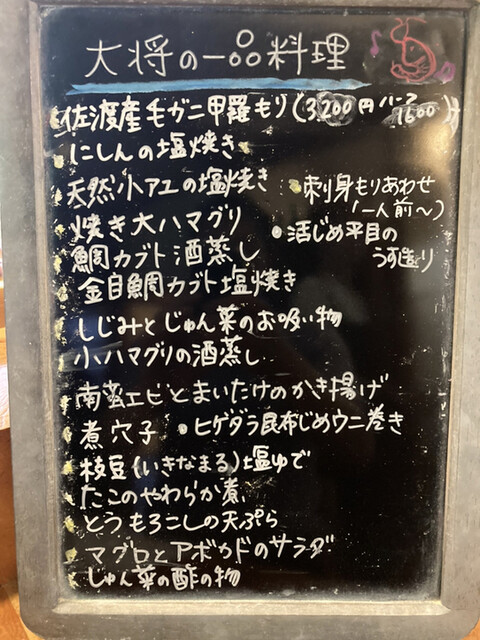 大将の一品料理
佐渡産毛ガニ甲羅もり(3200円 ハーフ1600)
にしんの塩焼き
天然小アユの塩焼き
・刺身もりあわせ
(一人前〜)
焼き大ハマグリ
・活じめ平目の
うす造り
鯛カブト酒蒸し
金目鯛カブト塩焼き
しじみとじゅん菜のお吸い物
小ハマグリの酒蒸し
南蛮エビとまいたけのかき揚げ
煮穴子 ・ヒゲダラ昆布じめウニ巻き
枝豆(いきなまる)塩ゆで
たこのやわらか煮
とうもろこしの天ぷら
マグロとアボカドのサラダ
じゅん菜の酢の物